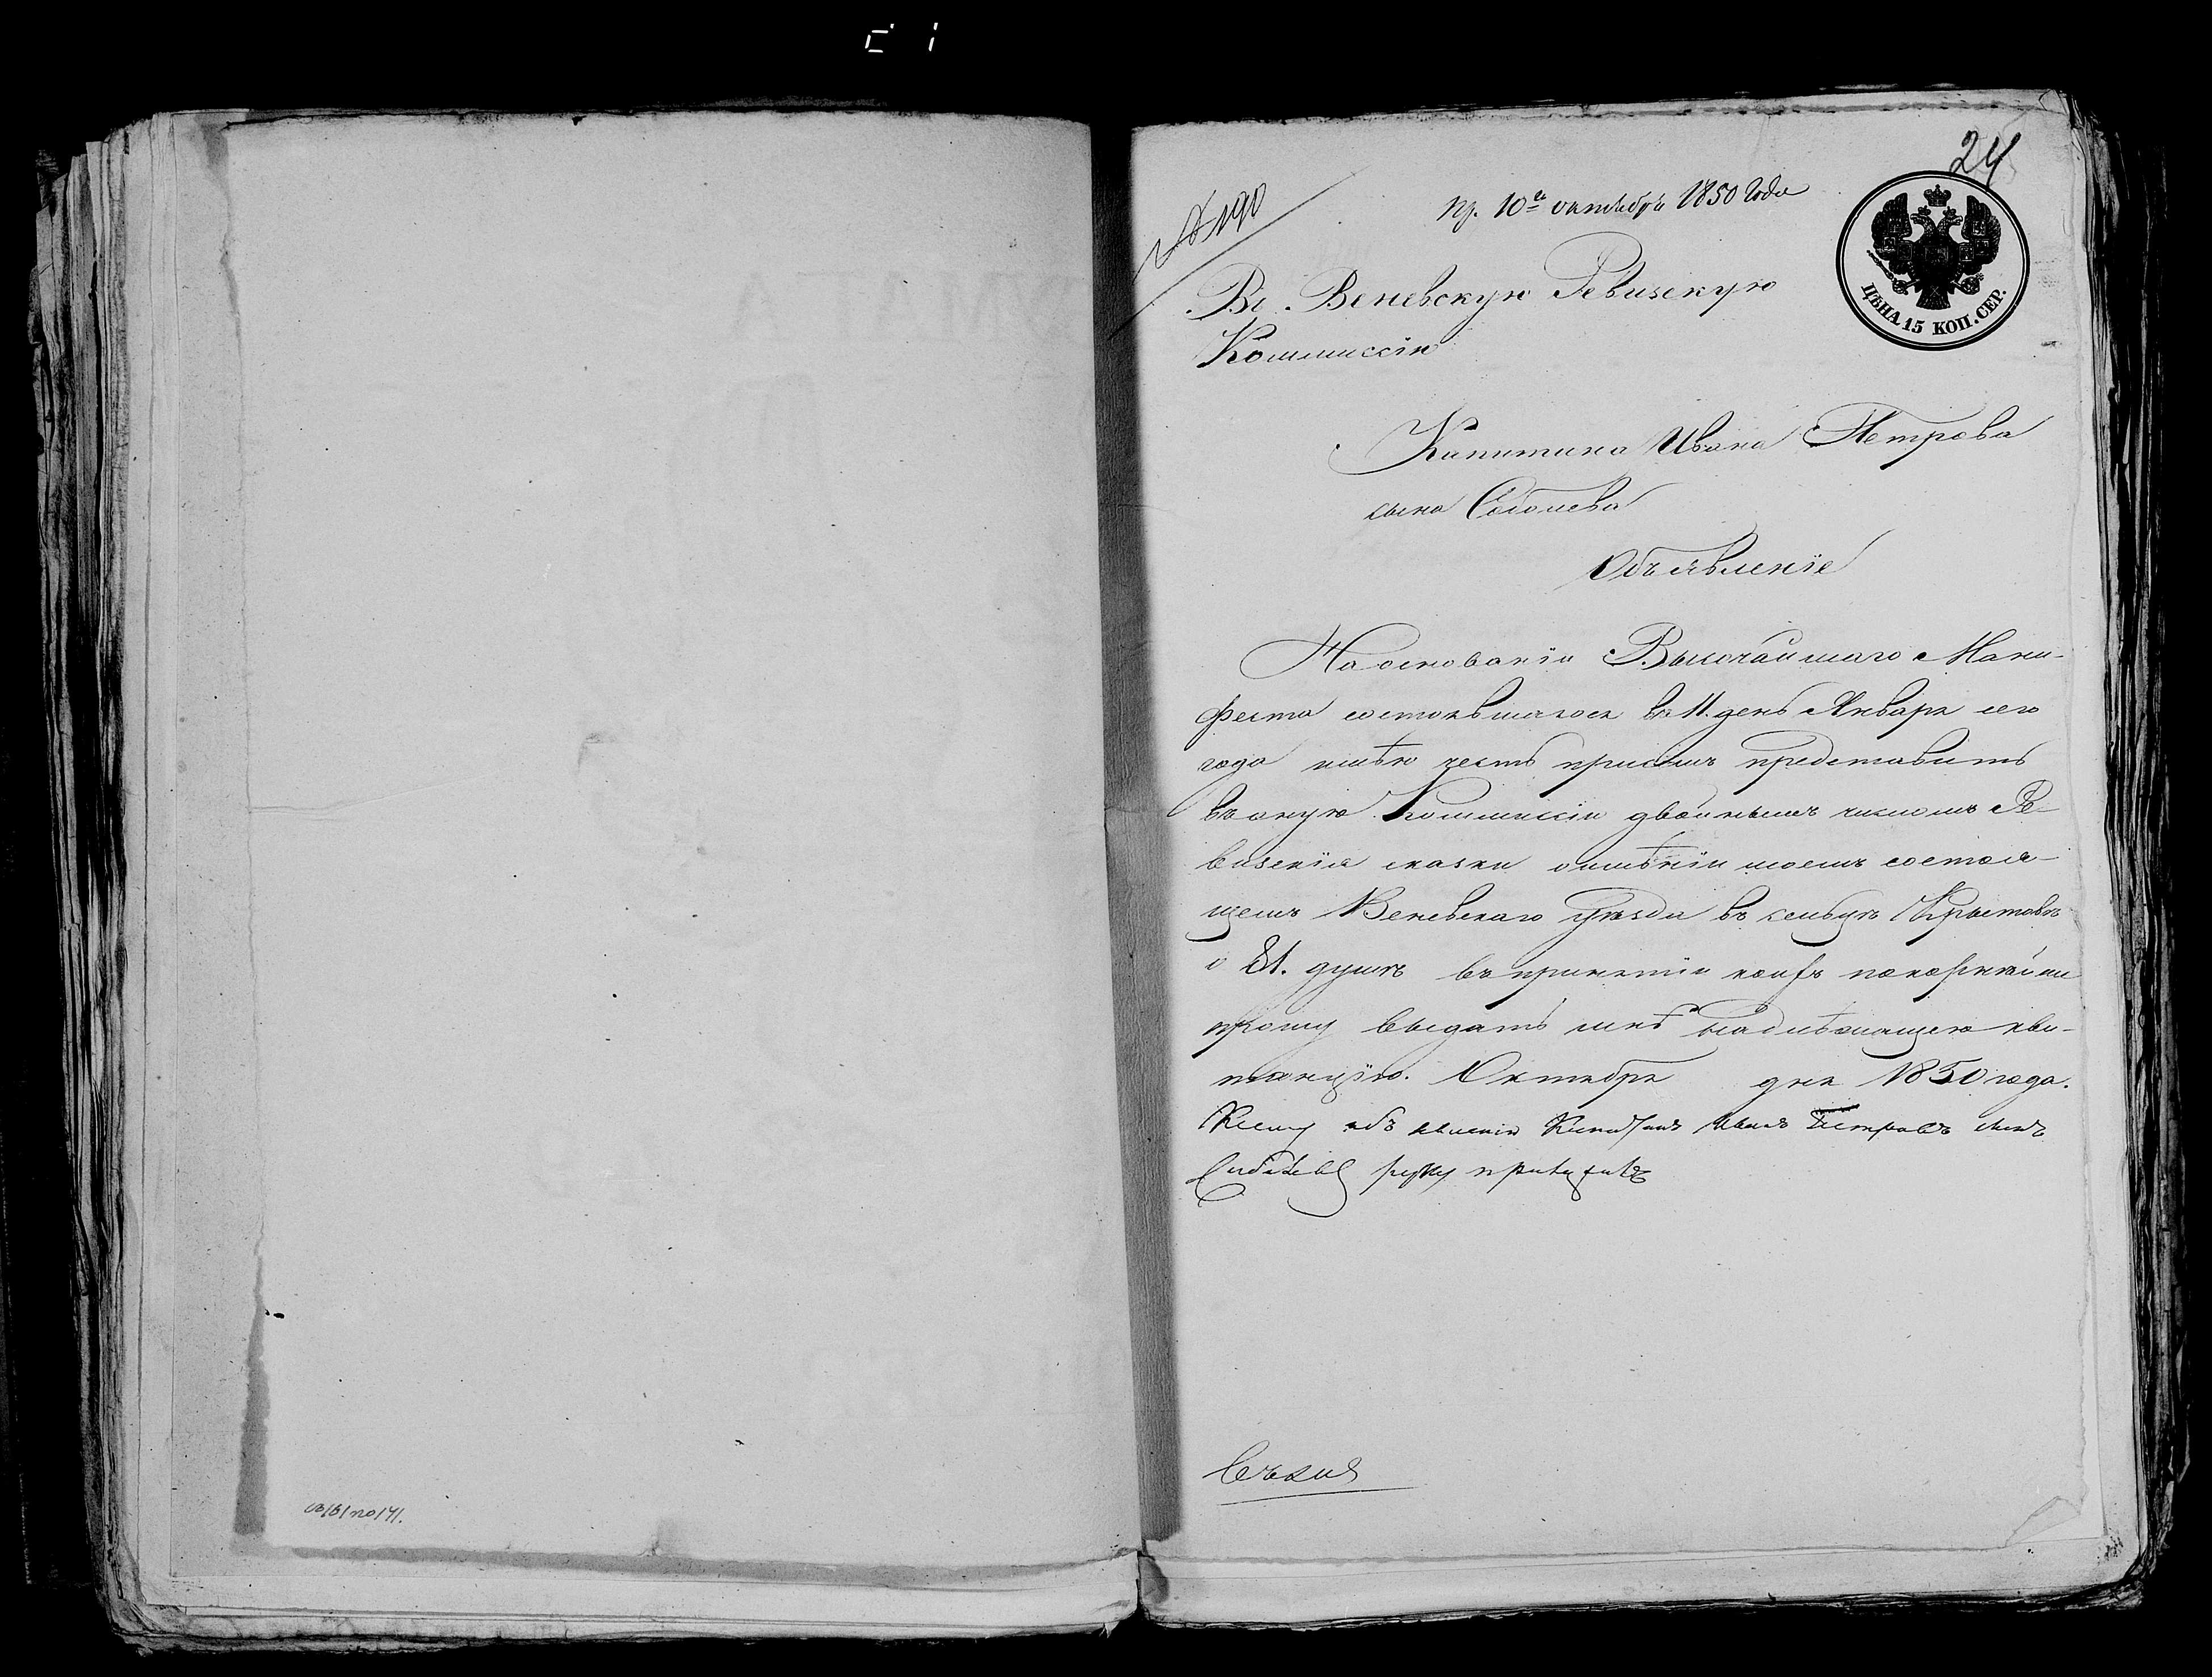 24
№ 190
пр. 10го октября 1850 года
ЦѢНА 15 КОП. СЕР.
Въ Веневскую Ревизскую
Коммиссію
Капитана Ивана Петрова
сына Соболева
Объявленіе
На основаніи Высочайшаго Мани-
феста состоявшагося въ 11 день Января сего
года имѣю честь присемъ представить
въ оную Коммиссію двойнымъ числомъ Ре-
визскія сказки о имѣніи моемъ состоя-
щемъ Веневскаго уѣзда въ сельцѣ
о 81. душѣ въ принятіи коихъ покорнѣйше
прошу выдать мнѣ надлежащую кви-
танцію. Октября дня 1850 года.
Къ сему объявленію Капитанъ Иванъ Петровъ сынъ
Соболевъ руку приложилъ